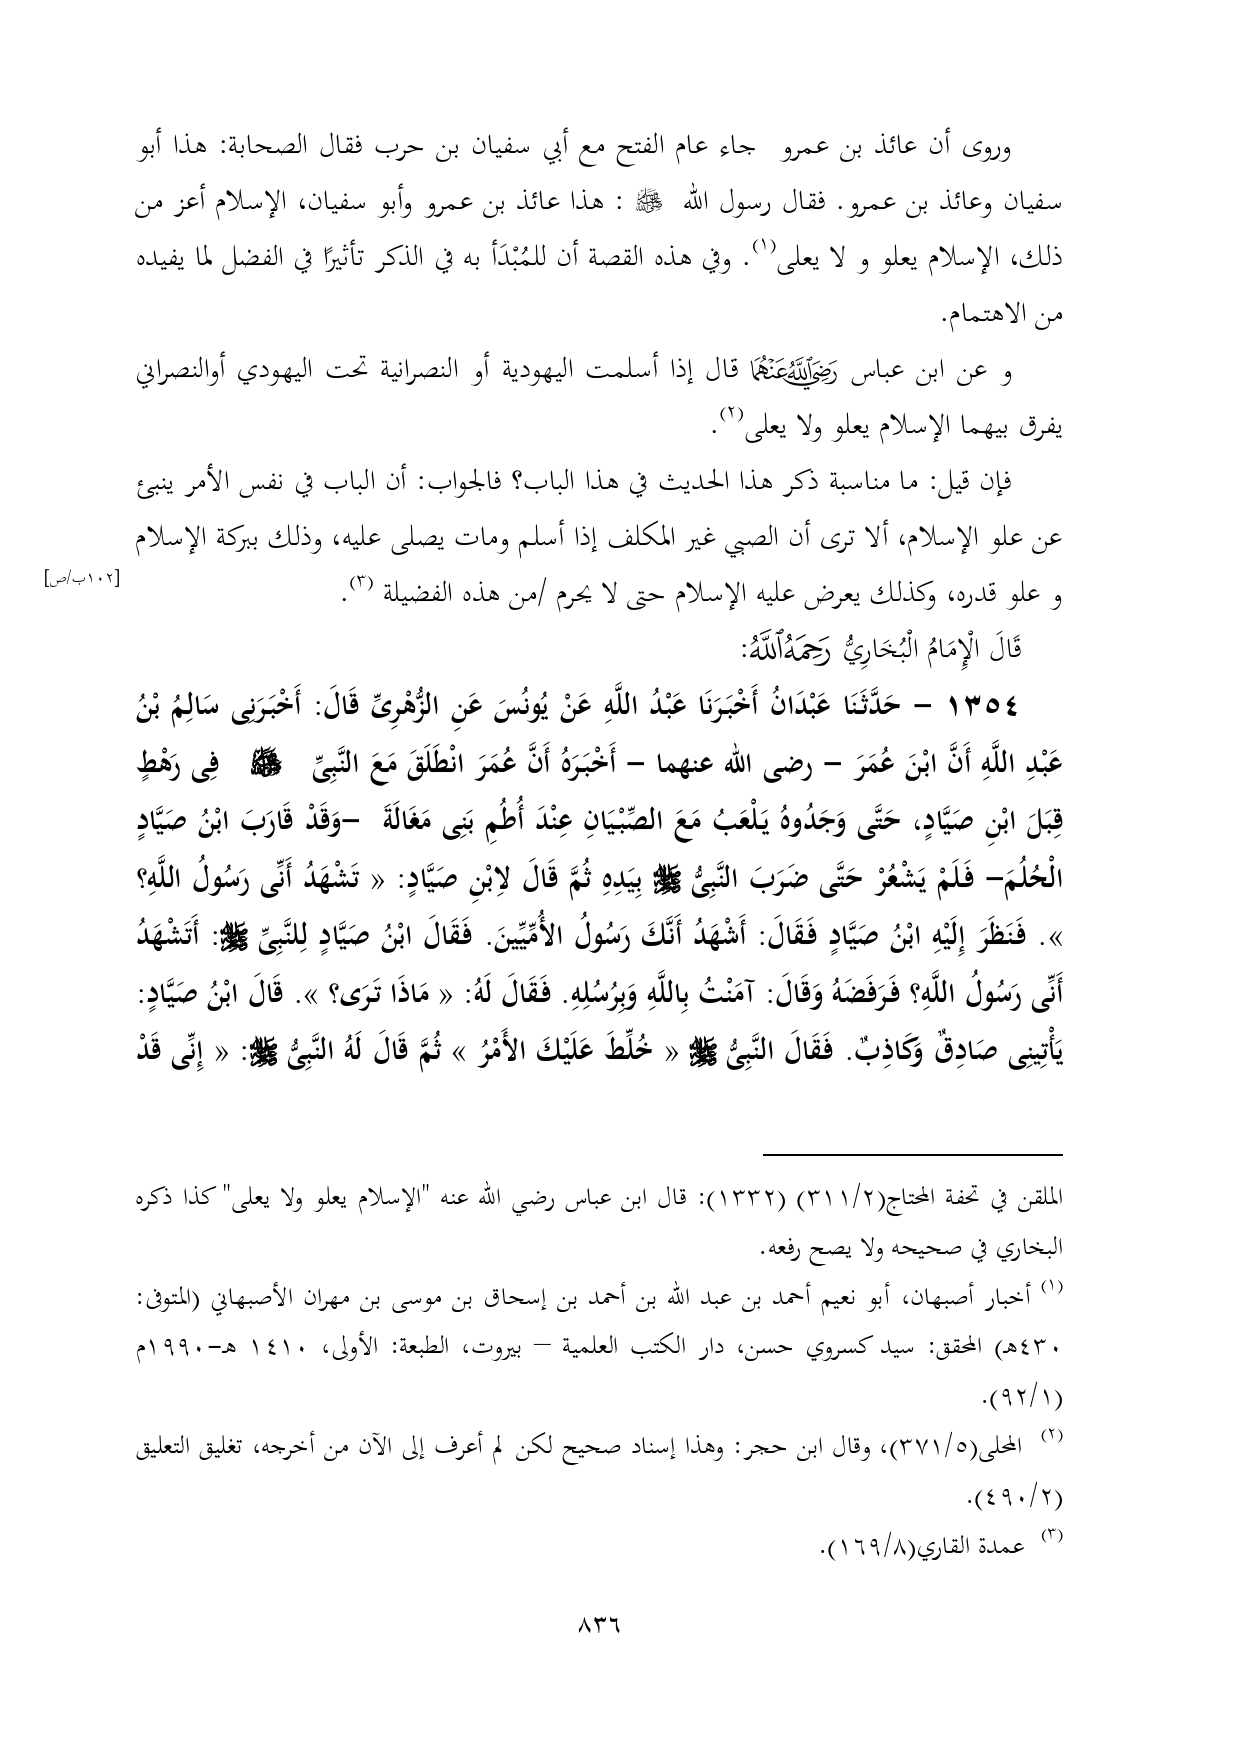 وروى أن عائذ بن عمرو جاء عام الفتح مع أبي سفيان بن حرب فقال الصحابة: هذا أبو
سفيان وعائذ بن عمرو. فقال رسول الله ﷺ : هذا عائذ بن عمرو وأبو سفيان، الإسلام أعز من
ذلك، الإسلام يعلو و لا يعلى(١). وفي هذه القصة أن للمُبْدَأ به في الذكر تأثيرًا في الفضل لما يفيده
من الاهتمام.
و عن ابن عباس رَضِيَ ٱللَّهُ عَنْهُمَا قال إذا أسلمت اليهودية أو النصرانية تحت اليهودي أوالنصراني
يفرق بيهما الإسلام يعلو ولا يعلى(٢).
فإن قيل: ما مناسبة ذكر هذا الحديث في هذا الباب؟ فالجواب: أن الباب في نفس الأمر ينبئ
عن علو الإسلام، ألا ترى أن الصبي غير المكلف إذا أسلم ومات يصلى عليه، وذلك ببركة الإسلام
و علو قدره، وكذلك يعرض عليه الإسلام حتى لا يحرم /من هذه الفضيلة (٣).
[١٠٢ب/ص]
قَالَ الْإِمَامُ الْبُخَارِيُّ رَحِمَهُ ٱللَّهُ:
١٣٥٤ – حَدَّثَنَا عَبْدَانُ أَخْبَرَنَا عَبْدُ اللَّهِ عَنْ يُونُسَ عَنِ الزُّهْرِىِّ قَالَ: أَخْبَرَنِى سَالِمُ بْنُ
عَبْدِ اللَّهِ أَنَّ ابْنَ عُمَرَ – رضى الله عنهما – أَخْبَرَهُ أَنَّ عُمَرَ انْطَلَقَ مَعَ النَّبِىِّ ﷺ فِى رَهْطٍ
قِبَلَ ابْنِ صَيَّادٍ، حَتَّى وَجَدُوهُ يَلْعَبُ مَعَ الصِّبْيَانِ عِنْدَ أُطُمِ بَنِى مَغَالَةَ –وَقَدْ قَارَبَ ابْنُ صَيَّادٍ
الْحُلُمَ– فَلَمْ يَشْعُرْ حَتَّى ضَرَبَ النَّبِىُّ ﷺ بِيَدِهِ ثُمَّ قَالَ لاِبْنِ صَيَّادٍ: « تَشْهَدُ أَنِّى رَسُولُ اللَّهِ؟
». فَنَظَرَ إِلَيْهِ ابْنُ صَيَّادٍ فَقَالَ: أَشْهَدُ أَنَّكَ رَسُولُ الأُمِّيِّينَ. فَقَالَ ابْنُ صَيَّادٍ لِلنَّبِىِّ ﷺ: أَتَشْهَدُ
أَنِّى رَسُولُ اللَّهِ؟ فَرَفَضَهُ وَقَالَ: آمَنْتُ بِاللَّهِ وَبِرُسُلِهِ. فَقَالَ لَهُ: « مَاذَا تَرَى؟ ». قَالَ ابْنُ صَيَّادٍ:
يَأْتِينِى صَادِقٌ وَكَاذِبٌ. فَقَالَ النَّبِىُّ ﷺ « خُلِّطَ عَلَيْكَ الأَمْرُ » ثُمَّ قَالَ لَهُ النَّبِىُّ ﷺ: « إِنِّى قَدْ
الملقن في تحفة المحتاج(٣١١/٢) (١٣٣٢): قال ابن عباس رضي الله عنه "الإسلام يعلو ولا يعلى" كذا ذكره
البخاري في صحيحه ولا يصح رفعه.
(١) أخبار أصبهان، أبو نعيم أحمد بن عبد الله بن أحمد بن إسحاق بن موسى بن مهران الأصبهاني (المتوفى:
٤٣٠هـ) المحقق: سيد كسروي حسن، دار الكتب العلمية – بيروت، الطبعة: الأولى، ١٤١٠ هـ-١٩٩٠م
(٩٢/١).
(٢) المحلى(٣٧١/٥)، وقال ابن حجر: وهذا إسناد صحيح لكن لم أعرف إلى الآن من أخرجه، تغليق التعليق
(٤٩٠/٢).
(٣) عمدة القاري(١٦٩/٨).
٨٣٦